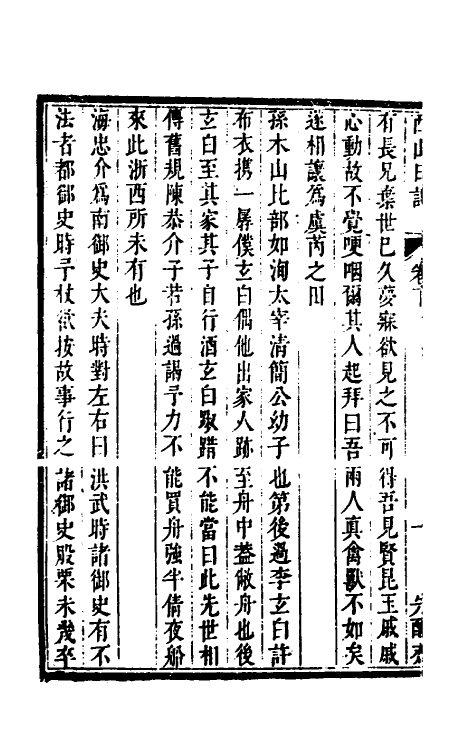 有長兄棄世巳久夢寐欲見之不可得吾見賢昆玉戚戚
心動故不覺哽咽爾其人起拜曰吾兩人真禽獸不如矣
遂相讓爲虞芮之田
孫木山比部如洵太宰清簡公幼子也第後過李玄白許
布衣携一孱僕玄白偶他出家人跡至舟中蓋敝舟也後
玄白至其家其子自行酒玄白踧踖不能當曰此先世相
傳舊規陳恭介子若孫過謁予力不能買舟強半倩夜船
來此浙西所未有也
海忠介爲南御史大夫時對左右曰洪武時諸御史有不
法者都御史時予杖欲按故事行之諸御史股栗未幾卒